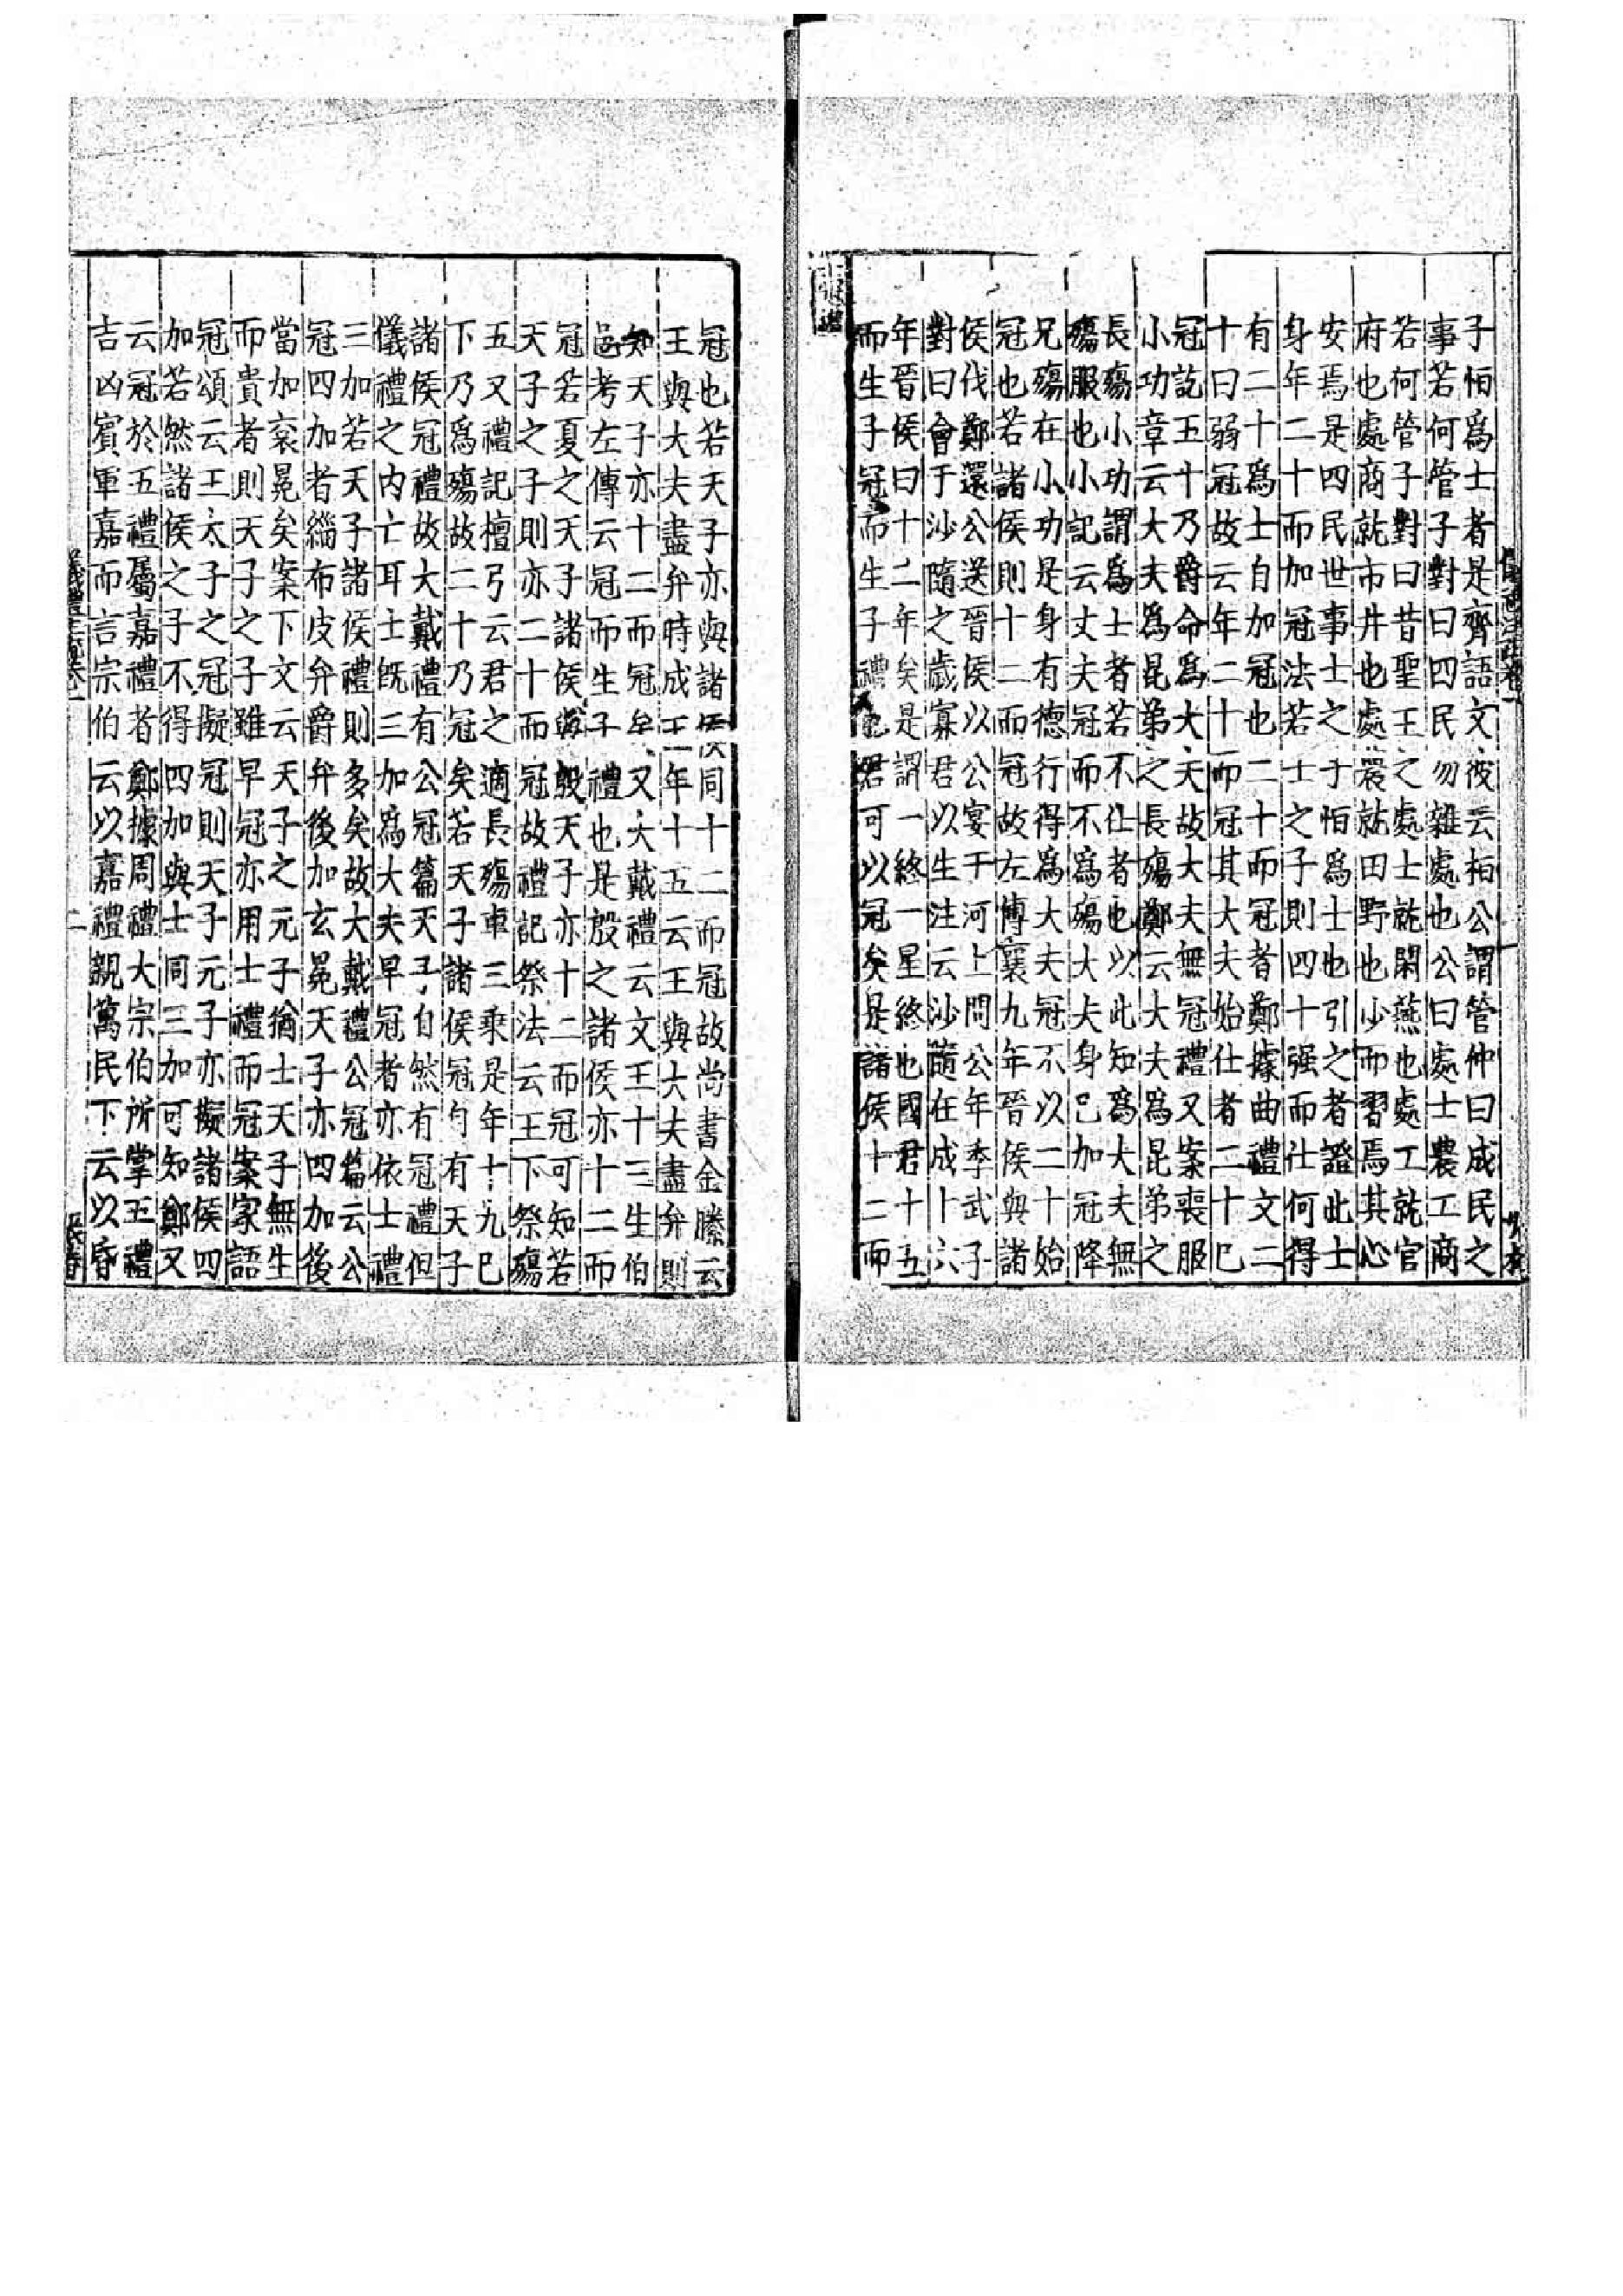 子怕爲士者是齊語文彼云桓公謂管仲曰成民之
事若何管子對曰四民勿雜處也公曰處士農工商
若何管子對曰昔聖王之處士就閑燕也處工就官
府也處商就市井也處農就田野也少而習焉其心
安焉是四民世事士之子怕爲士也引之者證此士
身年二十而加冠法若士之子則四十强而仕何得
有二十爲士自加冠也二十而冠者鄭據曲禮文二
十曰弱冠故云年二十而冠其大夫始仕者二十巳
冠訖五十乃爵命爲大夫故大夫無冠禮又案喪服
小功章云大夫爲昆弟之長殤鄭云大夫爲昆弟之
長殤小功謂爲士者若不仕者也以此知爲大夫無
殤服也小記云丈夫冠而不爲殤大夫身已加冠降
兄殤在小功是身有德行得爲大夫冠不以二十始
冠也若諸侯則十二而冠故左傳襄九年晉侯與諸
侯伐鄭還公送晉侯以公宴于河上問公年季武子
對曰會于沙隨之歲寡君以生注云沙隨在成十六
年晉侯曰十二年矣是謂一終一星終也國君十五
而生子冠而生子禮也君可以冠矣是諸侯十二而
冠也若天子亦與諸侯同十二而冠故尚書金縢云
王與大夫盡弁時成王年十五云王與大夫盡弁則
知天子亦十二而冠矣又大戴禮云文王十三生伯
邑考左傳云冠而生子禮也是殷之諸侯亦十二而
冠若夏之天子諸侯與殷天子亦十二而冠可知若
天子之子則亦二十而冠故禮記祭法云王下祭殤
五又禮記檀弓云君之適長殤車三乘是年十九巳
下乃爲殤故二十乃冠矣若天子諸侯冠自有天子
諸侯冠禮故大戴禮有公冠篇天子自然有冠禮但
儀禮之內亡耳士旣三加爲大夫早冠者亦依士禮
三加若天子諸侯禮則多矣故大戴禮公冠篇云公
冠四加者緇布皮弁爵弁後加玄冕天子亦四加後
當加衮冕矣案下文云天子之元子猶士天子無生
而貴者則天子之子雖早冠亦用士禮而冠案家語
冠頌云王太子之冠擬冠則天子元子亦擬諸侯四
加若然諸侯之子不得四加與士同三加可知鄭又
云冠於五禮屬嘉禮者鄭據周禮大宗伯所掌五禮
吉凶賓軍嘉而言宗伯云以嘉禮親萬民下云以昏
二